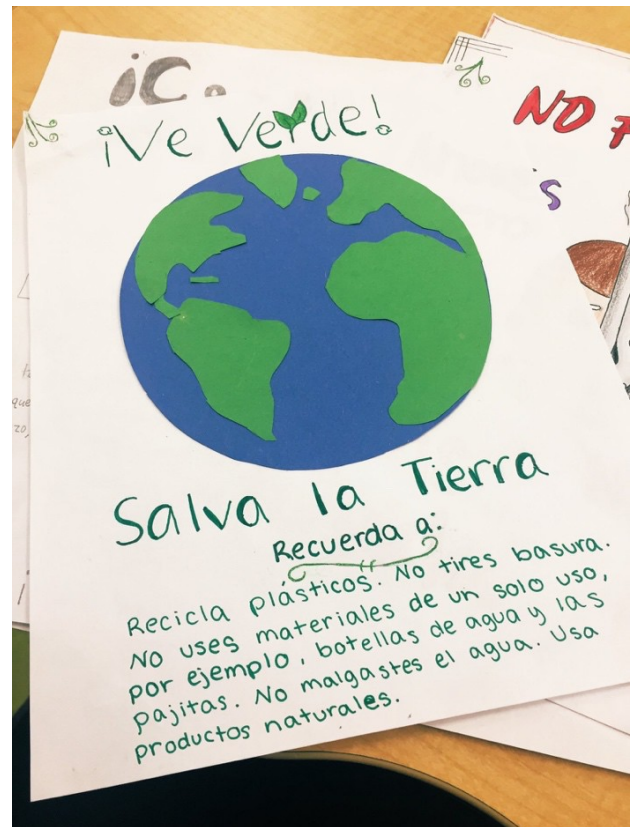 iC.
¡Ve Verde!
NO
s
Salva la Tierra
Recuerda a:
Recicla plásticos. No tires basura.
No uses materiales de un solo uso,
por ejemplo, botellas de agua y las
pajitas. No malgastes el agua. Usa
productos naturales.